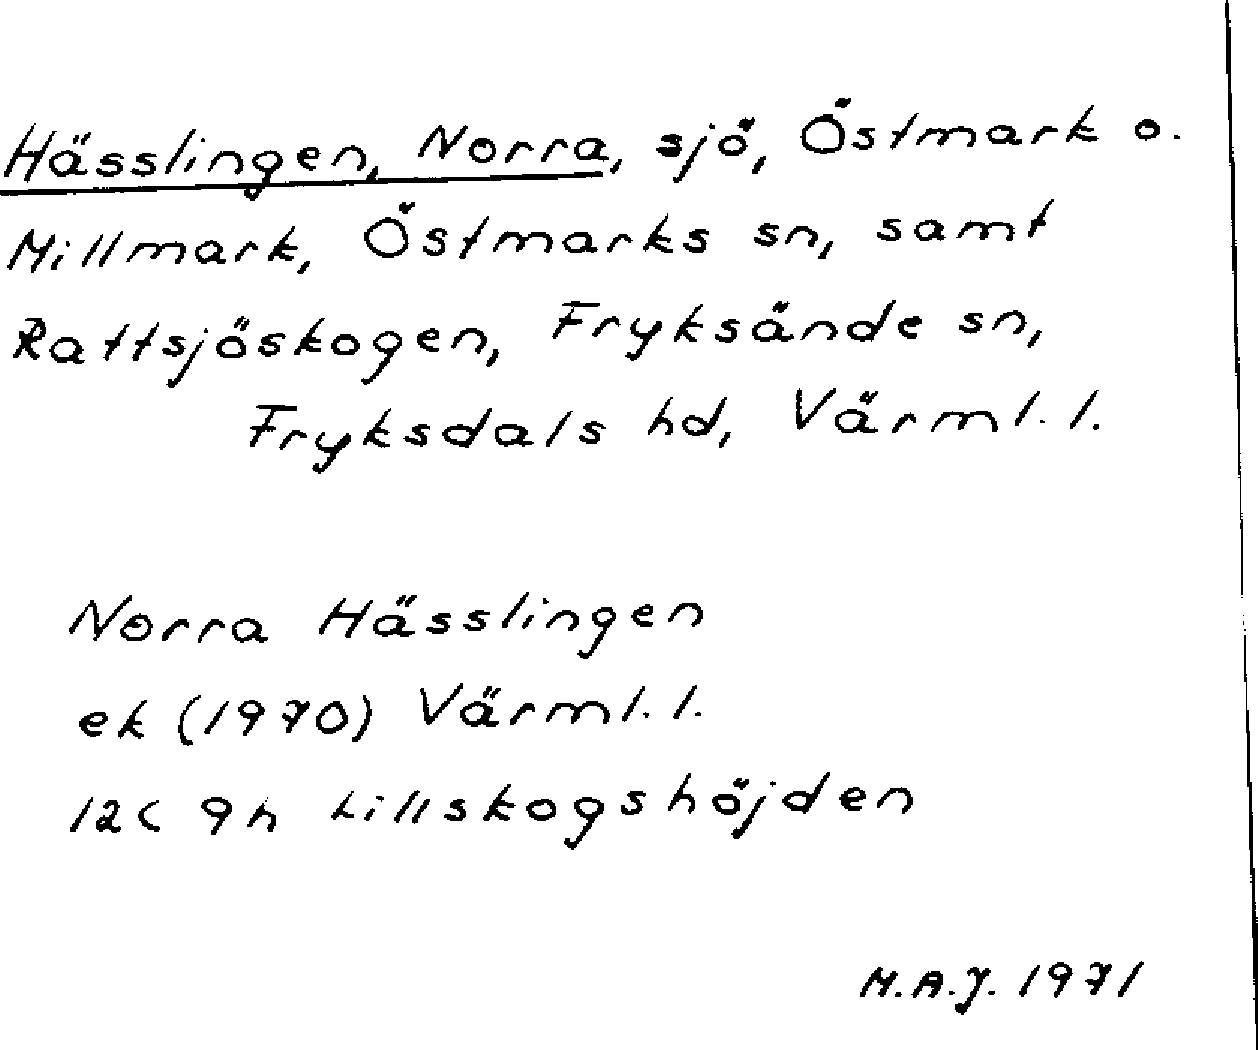 Hässlingen, Norra, sjö, Östmark o.
Millmark, Östmarks sn, samt
Rattsjöskogen, Fryksände sn,
Fryksdals hd, Värml. l.
Norra Hässlingen
ek (1970) Värml. l.
12C 9h Lillskogshöjden
M.A.J. 1971